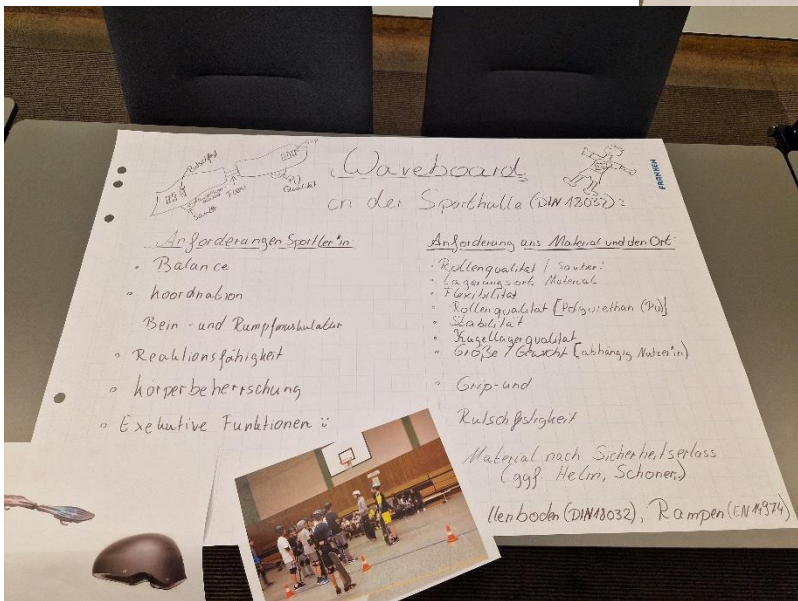 Rutschfest
Flexi
Waveboard
FRANKEN
in der Sporthalle (DIN 18032):
Anforderungen Sportler*in:
• Balance
• Koordination
Bein- und Rumpfmuskulatur
• Reaktionsfähigkeit
• Körperbeherrschung
• Exekutive Funktionen
Anforderung ans Material und den Ort:
• Rollenqualität / Sauber!
• Lagerungsort Material
• Flexibilität
• Rollenqualität [Polyurethan (PU)]
• Stabilität
• Kugellagerqualität
• Größe / Gewicht [abhängig Nutzer*in)
• Grip- und
Rutschfestigkeit
Material nach Sicherheitserlass
(ggf. Helm, Schoner..)
llenboden (DIN18032), Rampen (EN14974)